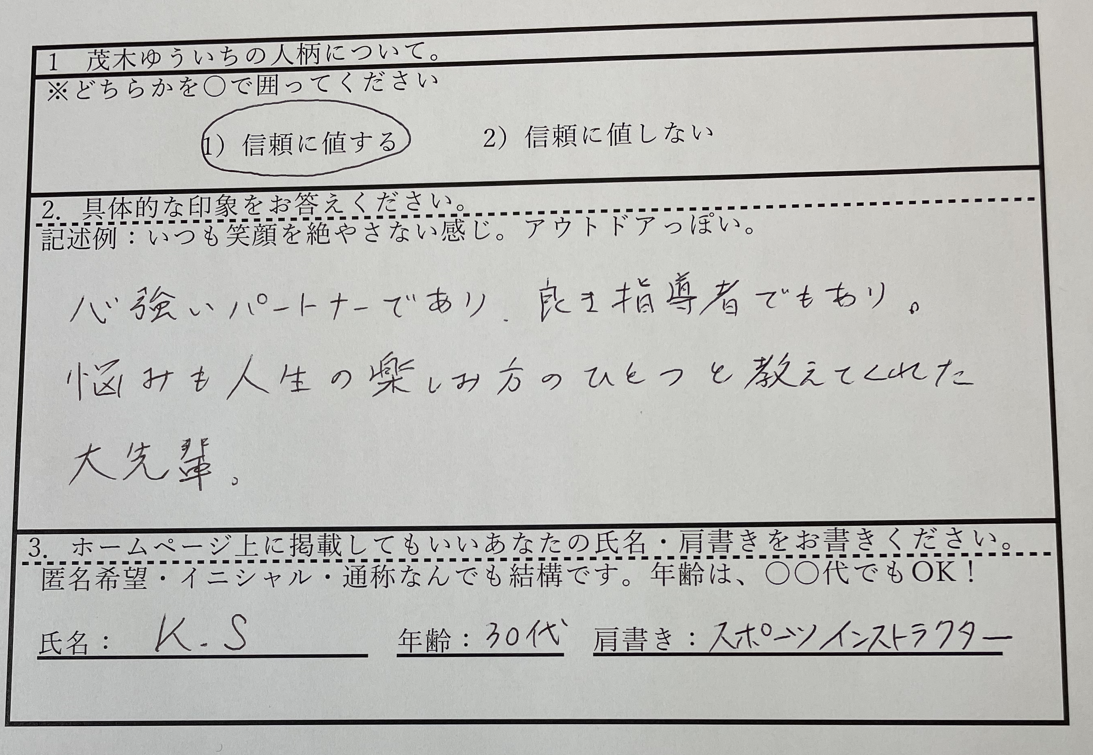 1　茂木ゆういちの人柄について。
※どちらかを〇で囲ってください
1）信頼に値する　2）信頼に値しない
2. 具体的な印象をお答えください。
記述例：いつも笑顔を絶やさない感じ。アウトドアっぽい。
心強いパートナーであり、良き指導者でもあり。
悩みも人生の楽しみ方のひとつと教えてくれた
大先輩。
3. ホームページ上に掲載してもいいあなたの氏名・肩書きをお書きください。
匿名希望・イニシャル・通称なんでも結構です。年齢は、〇〇代でもOK！
氏名： K.S　年齢：30代　肩書き：スポーツインストラクター